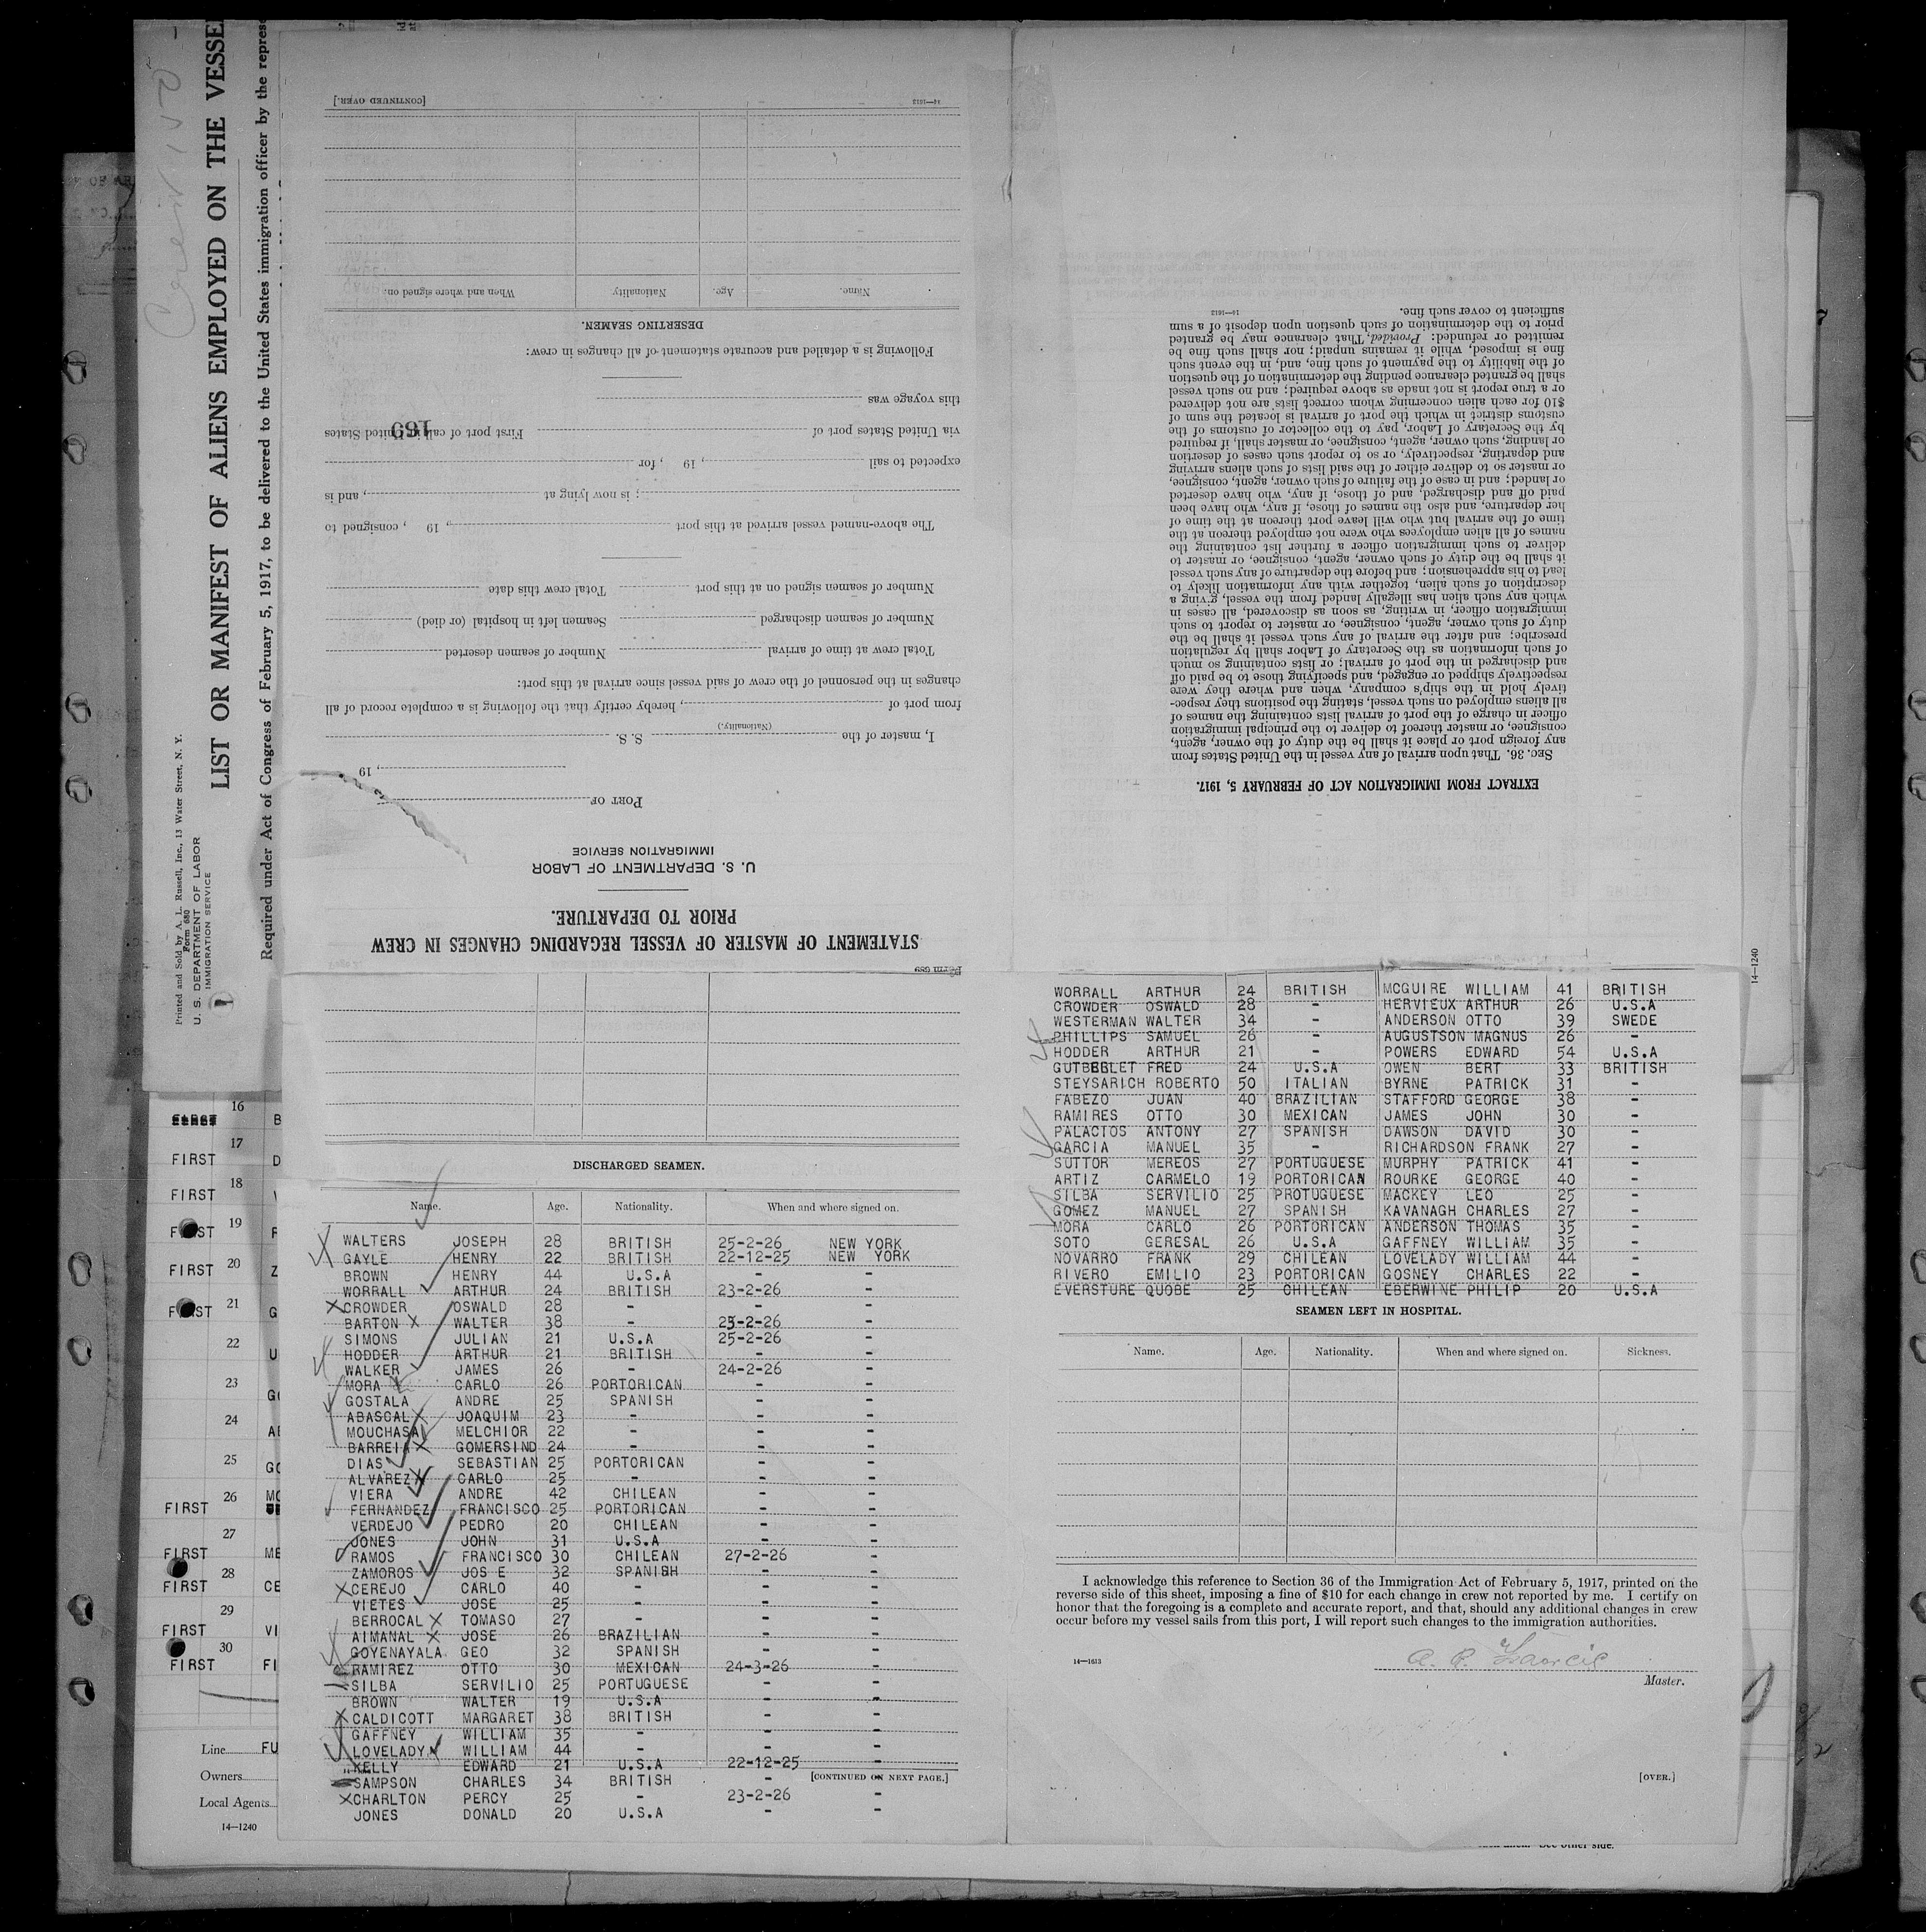 Printed and Sold by A. L. Russell, Inc., 13 Water Street, N. Y.
Form 680
U. S. DEPARTMENT OF LABOR
IMMIGRATION SERVICE
LIST OR MANIFEST OF ALIENS EMPLOYED ON THE VESSE
Required under Act of Congress of February 5, 1917, to be delivered to the United States immigration officer by the repres
Form 689
STATEMENT OF MASTER OF VESSEL REGARDING CHANGES IN CREW
PRIOR TO DEPARTURE.
U. S. DEPARTMENT OF LABOR
IMMIGRATION SERVICE
PORT OF
, 19
I, master of the S. S.
(Nationality.)
from port of , hereby certify that the following is a complete record of all
changes in the personnel of the crew of said vessel since arrival at this port:
Total crew at time of arrival Number of seamen deserted
Number of seamen discharged Seamen left in hospital (or died)
Number of seamen signed on at this port Total crew this date
The above-named vessel arrived at this port , 19 , consigned to
; is now lying at , and is
expected to sail , 19 , for
via United States port of First port of call in United States
169
this voyage was
Following is a detailed and accurate statement of all changes in crew:
DESERTING SEAMEN.
Name. Age. Nationality. When and where signed on.
14—1613 [CONTINUED OVER.]
EXTRACT FROM IMMIGRATION ACT OF FEBRUARY 5, 1917.
SEC. 36. That upon arrival of any vessel in the United States from
any foreign port or place it shall be the duty of the owner, agent,
consignee, or master thereof to deliver to the principal immigration
officer in charge of the port of arrival lists containing the names of
all aliens employed on such vessel, stating the positions they respec-
tively hold in the ship's company, when and where they were
respectively shipped or engaged, and specifying those to be paid off
and discharged in the port of arrival; or lists containing so much
of such information as the Secretary of Labor shall by regulation
prescribe; and after the arrival of any such vessel it shall be the
duty of such owner, agent, consignee, or master to report to such
immigration officer, in writing, as soon as discovered, all cases in
which any such alien has illegally landed from the vessel, giving a
description of such alien, together with any information likely to
lead to his apprehension; and before the departure of any such vessel
it shall be the duty of such owner, agent, consignee, or master to
deliver to such immigration officer a further list containing the
names of all alien employees who were not employed thereon at the
time of the arrival but who will leave port thereon at the time of
her departure, and also the names of those, if any, who have been
paid off and discharged, and of those, if any, who have deserted
or landed; and in case of the failure of such owner, agent, consignee,
or master so to deliver either of the said lists of such aliens arriving
and departing, respectively, or so to report such cases of desertion
or landing, such owner, agent, consignee, or master shall, if required
by the Secretary of Labor, pay to the collector of customs of the
customs district in which the port of arrival is located the sum of
$10 for each alien concerning whom correct lists are not delivered
or a true report is not made as above required; and no such vessel
shall be granted clearance pending the determination of the question
of the liability to the payment of such fine, and, in the event such
fine is imposed, while it remains unpaid; nor shall such fine be
remitted or refunded: Provided, That clearance may be granted
prior to the determination of such question upon deposit of a sum
sufficient to cover such fine.
14—1613
14—1240
DISCHARGED SEAMEN.
Name. Age. Nationality. When and where signed on.
WALTERS JOSEPH 28 BRITISH 25-2-26 NEW YORK
GAYLE HENRY 22 BRITISH 22-12-25 NEW YORK
BROWN HENRY 44 U.S.A - -
WORRALL ARTHUR 24 BRITISH 23-2-26 -
CROWDER OSWALD 28 - - -
BARTON WALTER 38 - 25-2-26 -
SIMONS JULIAN 21 U.S.A 25-2-26 -
HODDER ARTHUR 21 BRITISH - -
WALKER JAMES 26 - 24-2-26 -
MORA CARLO 26 PORTORICAN - -
GOSTALA ANDRE 25 SPANISH - -
ABASCAL JOAQUIM 23 - - -
MOUCHASA MELCHIOR 22 - - -
BARREIA GOMERSIND 24 - - -
DIAS SEBASTIAN 25 PORTORICAN - -
ALVAREZ CARLO 25 - - -
VIERA ANDRE 42 CHILEAN - -
FERNANDEZ FRANCISCO 25 PORTORICAN - -
VERDEJO PEDRO 20 CHILEAN - -
JONES JOHN 31 U.S.A - -
RAMOS FRANCISCO 30 CHILEAN 27-2-26 -
ZAMOROS JOS E 32 SPANISH - -
CEREJO CARLO 40 - - -
VIETES JOSE 25 - - -
BERROCAL TOMASO 27 - - -
AIMANAL JOSE 26 BRAZILIAN - -
GOYENAYALA GEO 32 SPANISH - -
RAMIREZ OTTO 30 MEXICAN 24-3-26 -
SILBA SERVILIO 25 PORTUGUESE - -
BROWN WALTER 19 U.S.A - -
CALDICOTT MARGARET 38 BRITISH - -
GAFFNEY WILLIAM 35 - - -
LOVELADY WILLIAM 44 - - -
KELLY EDWARD 21 U.S.A 22-12-25 -
SAMPSON CHARLES 34 BRITISH - -
[CONTINUED ON NEXT PAGE.]
CHARLTON PERCY 25 - 23-2-26 -
JONES DONALD 20 U.S.A - -
WORRALL ARTHUR 24 BRITISH MCGUIRE WILLIAM 41 BRITISH
CROWDER OSWALD 28 - HERVIEUX ARTHUR 26 U.S.A
WESTERMAN WALTER 34 - ANDERSON OTTO 39 SWEDE
PHILLIPS SAMUEL 26 - AUGUSTSON MAGNUS 26 -
HODDER ARTHUR 21 - POWERS EDWARD 54 U.S.A
FRED 24 U.S.A OWEN BERT 33 BRITISH
STEYSARICH ROBERTO 50 ITALIAN BYRNE PATRICK 31 -
FABEZO JUAN 40 BRAZILIAN STAFFORD GEORGE 38 -
RAMIRES OTTO 30 MEXICAN JAMES JOHN 30 -
PALACIOS ANTONY 27 SPANISH DAWSON DAVID 30 -
GARCIA MANUEL 35 - RICHARDSON FRANK 27 -
SUTTOR MEREOS 27 PORTUGUESE MURPHY PATRICK 41 -
ARTIZ CARMELO 19 PORTORICAN ROURKE GEORGE 40 -
SILBA SERVILIO 25 PROTUGUESE MACKEY LEO 25 -
GOMEZ MANUEL 27 SPANISH KAVANAGH CHARLES 27 -
MORA CARLO 26 PORTORICAN ANDERSON THOMAS 35 -
SOTO GERESAL 26 U.S.A GAFFNEY WILLIAM 35 -
NOVARRO FRANK 29 CHILEAN LOVELADY WILLIAM 44 -
RIVERO EMILIO 23 PORTORICAN GOSNEY CHARLES 22 -
EVERSTURE QUOBE 25 CHILEAN EBERWINE PHILIP 20 U.S.A
SEAMEN LEFT IN HOSPITAL.
Name. Age. Nationality. When and where signed on. Sickness.
I acknowledge this reference to Section 36 of the Immigration Act of February 5, 1917, printed on the
reverse side of this sheet, imposing a fine of $10 for each change in crew not reported by me. I certify on
honor that the foregoing is a complete and accurate report, and that, should any additional changes in crew
occur before my vessel sails from this port, I will report such changes to the immigration authorities.
14—1613
Master.
[OVER.]
16 B
17
FIRST D
18
FIRST V
19
20
FIRST Z
21
G
22
U
23
GO
24
AL
25
GO
26 MO
FIRST
27
FIRST ME
28
FIRST CE
29
FIRST VI
30
FIRST FI
Line FU
Owners
Local Agents
14—1240
See other side.